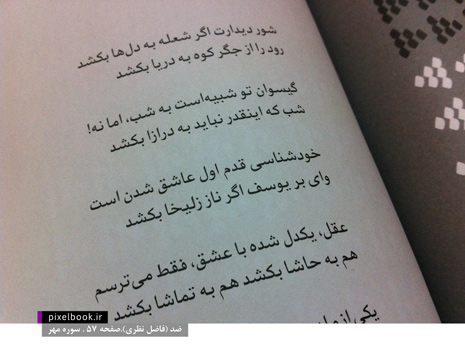 شور دیدارت اگر شعله به دل‌ها بکشد
رود را از جگر کوه به دریا بکشد
گیسوان تو شبیه‌است به شب، اما نه!
شب که اینقدر نباید به درازا بکشد
خودشناسی قدم اول عاشق شدن است
وای بر یوسف اگر ناز زلیخا بکشد
عقل، یکدل شده با عشق، فقط می‌ترسم
هم به حاشا بکشد هم به تماشا بکشد
یکی از
pixelbook.ir
ضد (فاضل نظری).صفحه ۵۷ . سوره مهر